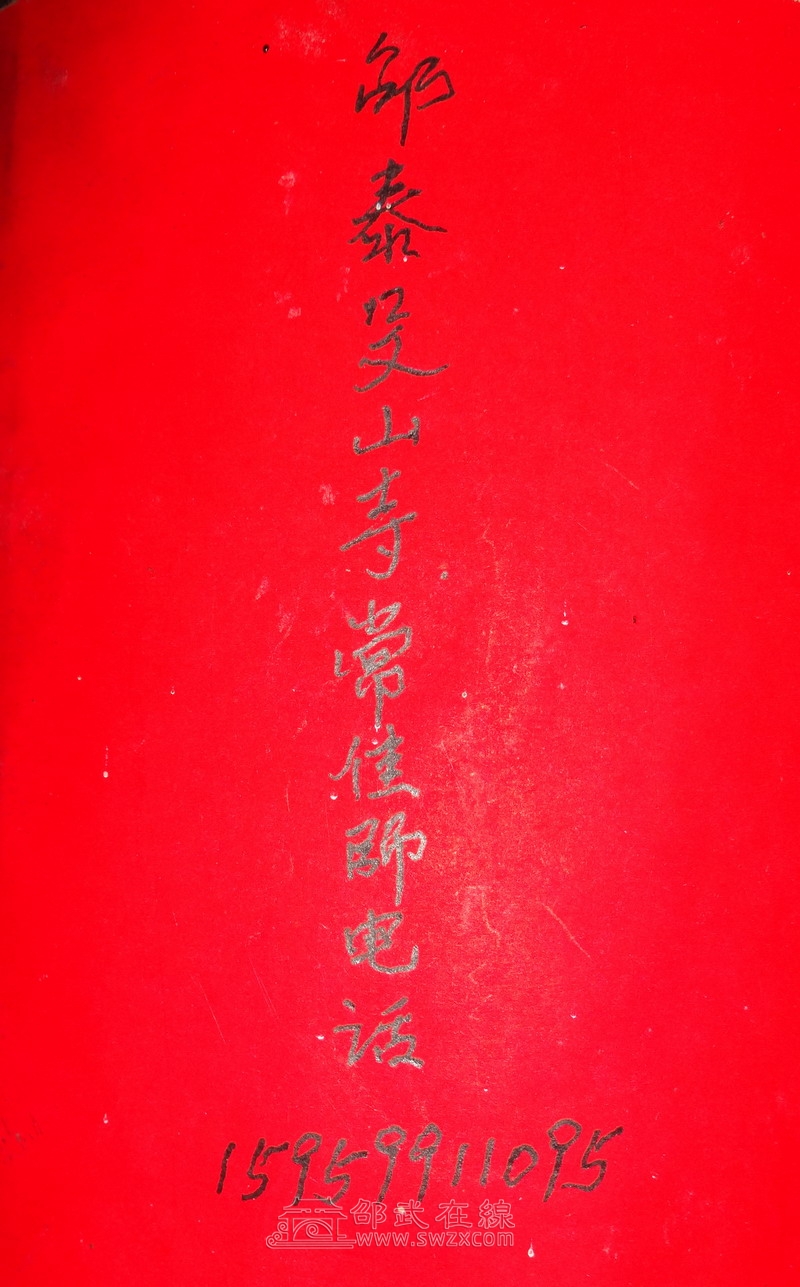 邵泰山寺常佳師电话
15959911095
邵武在線
www.swzx.com